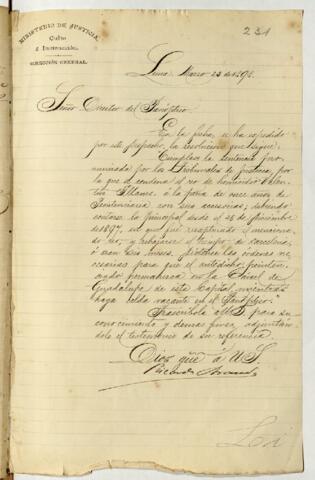 231
MINISTERIO DE JUSTICIA,
Culto
é Instrucción.
DIRECCIÓN GENERAL.
Lima, Marzo 23 de 1898.
Señor Director del Panóptico.
En la fecha, se ha expedido
por este despacho, la resolución que sigue:
"Cúmplase la sentencia pro-
nunciada por los Tribunales de Justicia, por
la que se condena al reo de homicidio Valen-
tín Illanes á la pena de once años de
Penitenciaría con sus accesorias; debiendo
contarse la principal desde el 28 de
1897, en que fué recapturado el menciona-
do reo, y rebajarse el tiempo de carcelería,
ó sean seis meses. Díctense las órdenes ne-
cesarias para que el antedicho senten-
ciado permanezca en la Cárcel de
Guadalupe de esta Capital, mientras
haya celda vacante en el Panóptico."
Trascríbola á US. para su
conocimiento y demás fines, adjuntán-
dole el testimonio de su referencia.
Dios gue. á US.
Ricardo